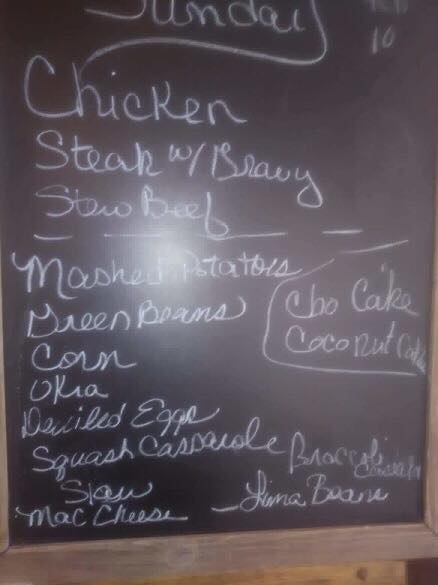 Sunday
10
Chicken
Steak w/ Gravy
Stew Beef
Mashed Potatoes
Green Beans
Cho Cake
Coconut Cake
Corn
Okra
Deviled Eggs
Squash Casserole
Broccoli
Casserole
Slaw
Lima Beans
Mac Cheese